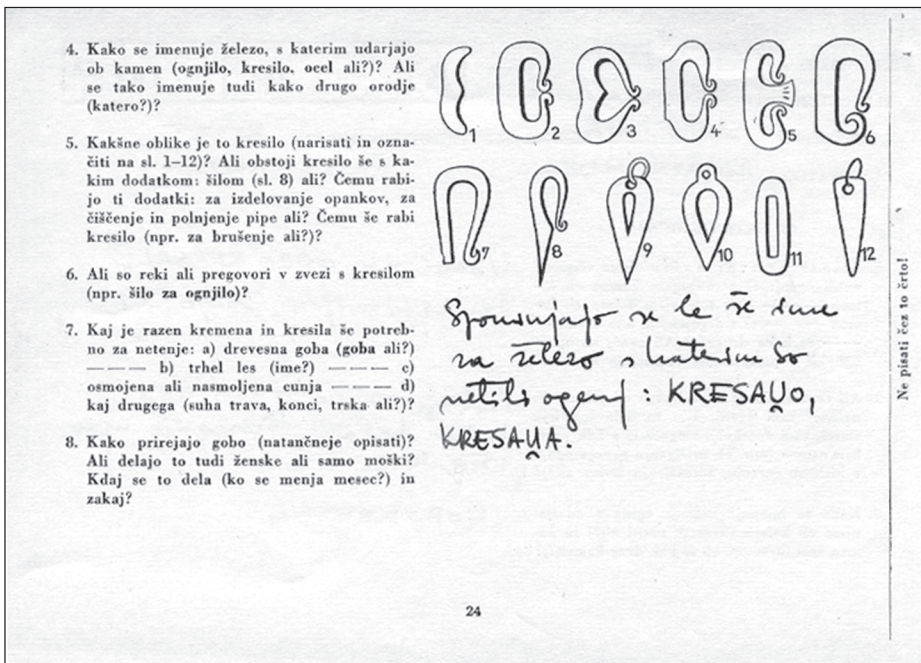 4. Kako se imenuje železo, s katerim udarjajo
ob kamen (ognjilo, kresilo, ocel ali?)? Ali
se tako imenuje tudi kako drugo orodje
(katero?)?
5. Kakšne oblike je to kresilo (narisati in ozna-
čiti na sl. 1–12)? Ali obstoji kresilo še s ka-
kim dodatkom: šilom (sl. 8) ali? Čemu rabi-
jo ti dodatki: za izdelovanje opankov, za
čiščenje in polnjenje pipe ali? Čemu še rabi
kresilo (npr. za brušenje ali?)?
6. Ali so reki ali pregovori v zvezi s kresilom
(npr. šilo za ognjilo)?
7. Kaj je razen kremena in kresila še potreb-
no za netenje: a) drevesna goba (goba ali?)
— — — b) trhel les (ime?) — — — c)
osmojena ali nasmoljena cunja — — — d)
kaj drugega (suha trava, konci, trska ali?)?
8. Kako prirejajo gobo (natančneje opisati)?
Ali delajo to tudi ženske ali samo moški?
Kdaj se to dela (ko se menja mesec?) in
zakaj?
1 2 3 4 5 6
7 8 9 10 11 12
Spominjajo se le še ime
za železo s katerim so
netili ogenj: KRESAU̯O,
KRESAU̯A.
Ne pisati čez to črto!
24